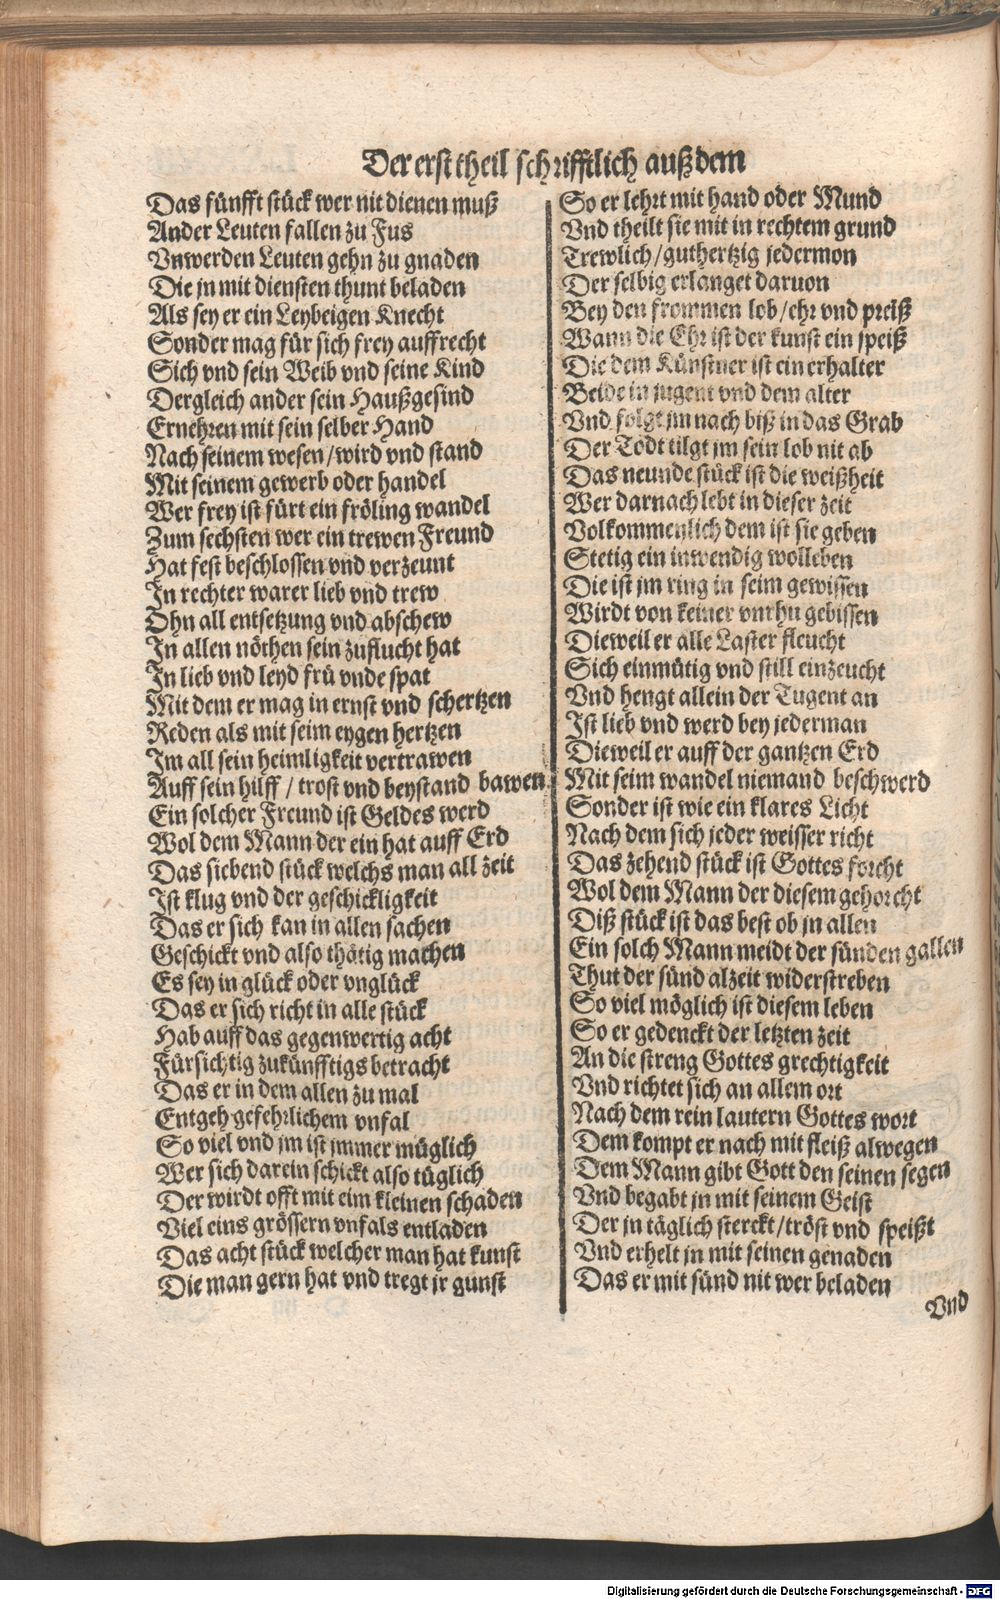 Der erst theil schrifftlich auß dem
Das fünfft stück wer nit dienen muß
Ander Leuten fallen zu Fus
Vnwerden Leuten gehn zu gnaden
Die jn mit diensten thunt beladen
Als sey er ein Leybeigen Knecht
Sonder mag für sich frey auffrecht
Sich vnd sein Weib vnd seine Kind
Dergleich ander sein Haußgesind
Ernehren mit sein selber Hand
Nach seinem wesen/wird vnd stand
Mit seinem gewerb oder handel
Wer frey ist fürt ein fröling wandel
Zum sechsten wer ein trewen Freund
Hat fest beschlossen vnd verzeunt
In rechter warer lieb vnd trew
Ohn all entsetzung vnd abschew
In allen nöthen sein zuflucht hat
In lieb vnd leyd frü vnde spat
Mit dem er mag in ernst vnd schertzen
Reden als mit seim eygen hertzen
Im all sein heimligkeit vertrawen
Auff sein hilff / trost vnd beystand bawen
Ein solcher Freund ist Geldes werd
Wol dem Mann der ein hat auff Erd
Das siebend stück welchs man all zeit
Ist klug vnd der geschickligkeit
Das er sich kan in allen sachen
Geschickt vnd also thätig machen
Es sey in glück oder vnglück
Das er sich richt in alle stück
Hab auff das gegenwertig acht
Fürsichtig zukünfftigs betracht
Das er in dem allen zu mal
Entgeh gefehrlichem vnfal
So viel vnd jm ist jmmer müglich
Wer sich darein schickt also tüglich
Der wirdt offt mit eim kleinen schaden
Viel eins grössern vnfals entladen
Das acht stück welcher man hat kunst
Die man gern hat vnd tregt jr gunst
So er lehrt mit hand oder Mund
Vnd theilt sie mit in rechtem grund
Trewlich/guthertzig jedermon
Der selbig erlanget daruon
Bey den frommen lob/ehr vnd preiß
Wann die Ehr ist der kunst ein speiß
Die dem Künstner ist ein erhalter
Beide in jugent vnd dem alter
Vnd folgt jm nach biß in das Grab
Der Todt tilgt jm sein lob nit ab
Das neunde stück ist die weißheit
Wer darnach lebt in dieser zeit
Volkommenlich dem ist sie geben
Stetig ein inwendig wolleben
Die ist jm ring in seim gewissen
Wirdt von keiner vnrhu gebissen
Dieweil er alle Laster fleucht
Sich einmütig vnd still einzeucht
Vnd hengt allein der Tugent an
Ist lieb vnd werd bey jederman
Dieweil er auff der gantzen Erd
Mit seim wandel niemand beschwerd
Sonder ist wie ein klares Licht
Nach dem sich jeder weisser richt
Das zehend stück ist Gottes forcht
Wol dem Mann der diesem gehorcht
Diß stück ist das best ob jn allen
Ein solch Mann meidt der sünden gallen
Thut der sünd alzeit widerstreben
So viel möglich ist diesem leben
So er gedenckt der letzten zeit
An die streng Gottes grechtigkeit
Vnd richtet sich an allem ort
Nach dem rein lautern Gottes wort
Dem kompt er nach mit fleiß alwegen
Dem Mann gibt Gott den seinen segen
Vnd begabt jn mit seinem Geist
Der jn täglich sterckt/tröst vnd speißt
Vnd erhelt jn mit seinen genaden
Das er mit sünd nit wer beladen
Vnd
Digitalisierung gefördert durch die Deutsche Forschungsgemeinschaft - DFG